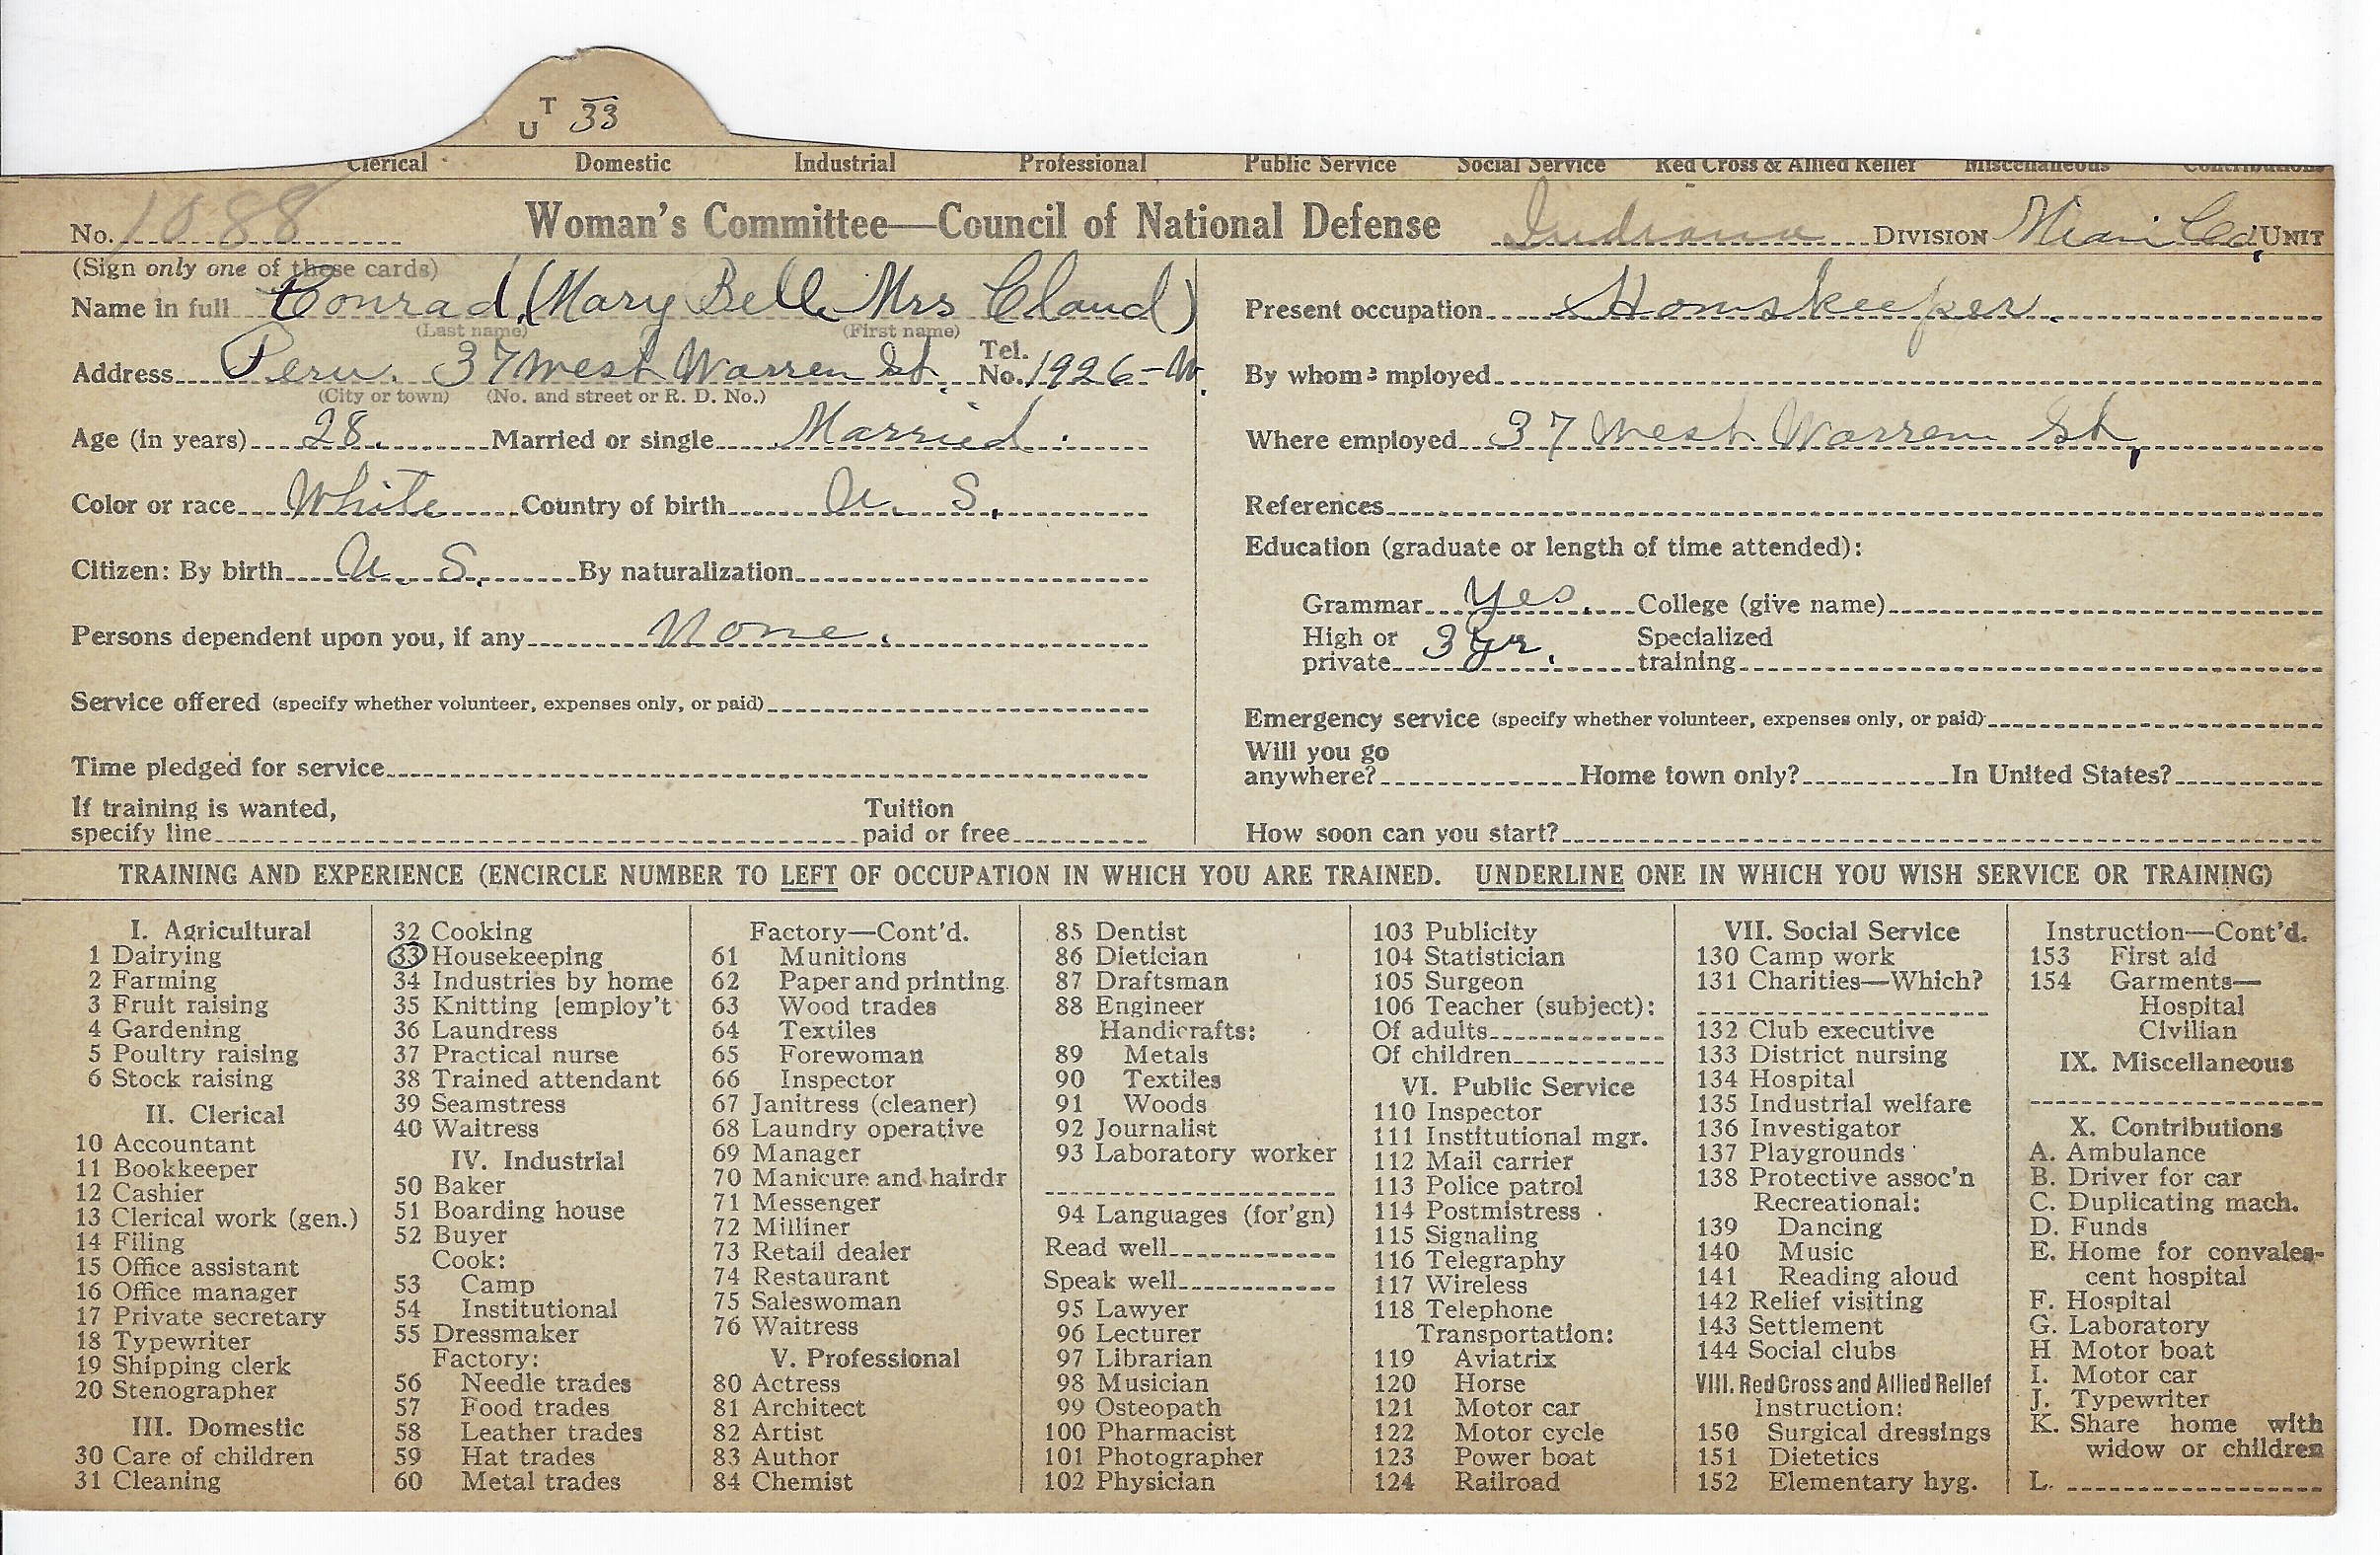 U T 33
Clerical Domestic Industrial Professional Public Service Social Service Red Cross & Allied Relief Miscellaneous Contributions
No. 1088 Woman's Committee—Council of National Defense Indiana DIVISION Miami Co. UNIT
(Sign only one of these cards)
Name in full Conrad, (Mary Bell, Mrs Claud)
(Last name) (First name)
Address Peru. 37 West Warren St. Tel. No. 1926-W.
(City or town) (No. and street or R. D. No.)
Age (in years) 28. Married or single Married.
Color or race White Country of birth U. S.
Citizen: By birth U. S. By naturalization
Persons dependent upon you, if any None.
Service offered (specify whether volunteer, expenses only, or paid)
Time pledged for service
If training is wanted,
specify line Tuition paid or free
Present occupation Homskeeper.
By whom employed
Where employed 37 West Warren St,
References
Education (graduate or length of time attended):
Grammar Yes. College (give name)
High or private 3 yr. Specialized training
Emergency service (specify whether volunteer, expenses only, or paid)
Will you go
anywhere? Home town only? In United States?
How soon can you start?
TRAINING AND EXPERIENCE (ENCIRCLE NUMBER TO LEFT OF OCCUPATION IN WHICH YOU ARE TRAINED. UNDERLINE ONE IN WHICH YOU WISH SERVICE OR TRAINING)
I. Agricultural
1 Dairying
2 Farming
3 Fruit raising
4 Gardening
5 Poultry raising
6 Stock raising
II. Clerical
10 Accountant
11 Bookkeeper
12 Cashier
13 Clerical work (gen.)
14 Filing
15 Office assistant
16 Office manager
17 Private secretary
18 Typewriter
19 Shipping clerk
20 Stenographer
III. Domestic
30 Care of children
31 Cleaning
32 Cooking
33 Housekeeping
34 Industries by home
35 Knitting [employ't
36 Laundress
37 Practical nurse
38 Trained attendant
39 Seamstress
40 Waitress
IV. Industrial
50 Baker
51 Boarding house
52 Buyer
Cook:
53 Camp
54 Institutional
55 Dressmaker
Factory:
56 Needle trades
57 Food trades
58 Leather trades
59 Hat trades
60 Metal trades
Factory—Cont'd.
61 Munitions
62 Paper and printing
63 Wood trades
64 Textiles
65 Forewoman
66 Inspector
67 Janitress (cleaner)
68 Laundry operative
69 Manager
70 Manicure and hairdr
71 Messenger
72 Milliner
73 Retail dealer
74 Restaurant
75 Saleswoman
76 Waitress
V. Professional
80 Actress
81 Architect
82 Artist
83 Author
84 Chemist
85 Dentist
86 Dietician
87 Draftsman
88 Engineer
Handicrafts:
89 Metals
90 Textiles
91 Woods
92 Journalist
93 Laboratory worker
94 Languages (for'gn)
Read well
Speak well
95 Lawyer
96 Lecturer
97 Librarian
98 Musician
99 Osteopath
100 Pharmacist
101 Photographer
102 Physician
103 Publicity
104 Statistician
105 Surgeon
106 Teacher (subject):
Of adults
Of children
VI. Public Service
110 Inspector
111 Institutional mgr.
112 Mail carrier
113 Police patrol
114 Postmistress
115 Signaling
116 Telegraphy
117 Wireless
118 Telephone
Transportation:
119 Aviatrix
120 Horse
121 Motor car
122 Motor cycle
123 Power boat
124 Railroad
VII. Social Service
130 Camp work
131 Charities—Which?
132 Club executive
133 District nursing
134 Hospital
135 Industrial welfare
136 Investigator
137 Playgrounds
138 Protective assoc'n
Recreational:
139 Dancing
140 Music
141 Reading aloud
142 Relief visiting
143 Settlement
144 Social clubs
VIII. Red Cross and Allied Relief
Instruction:
150 Surgical dressings
151 Dietetics
152 Elementary hyg.
Instruction—Cont'd.
153 First aid
154 Garments—
Hospital
Civilian
IX. Miscellaneous
X. Contributions
A. Ambulance
B. Driver for car
C. Duplicating mach.
D. Funds
E. Home for convales-
cent hospital
F. Hospital
G. Laboratory
H. Motor boat
I. Motor car
J. Typewriter
K. Share home with
widow or children
L.